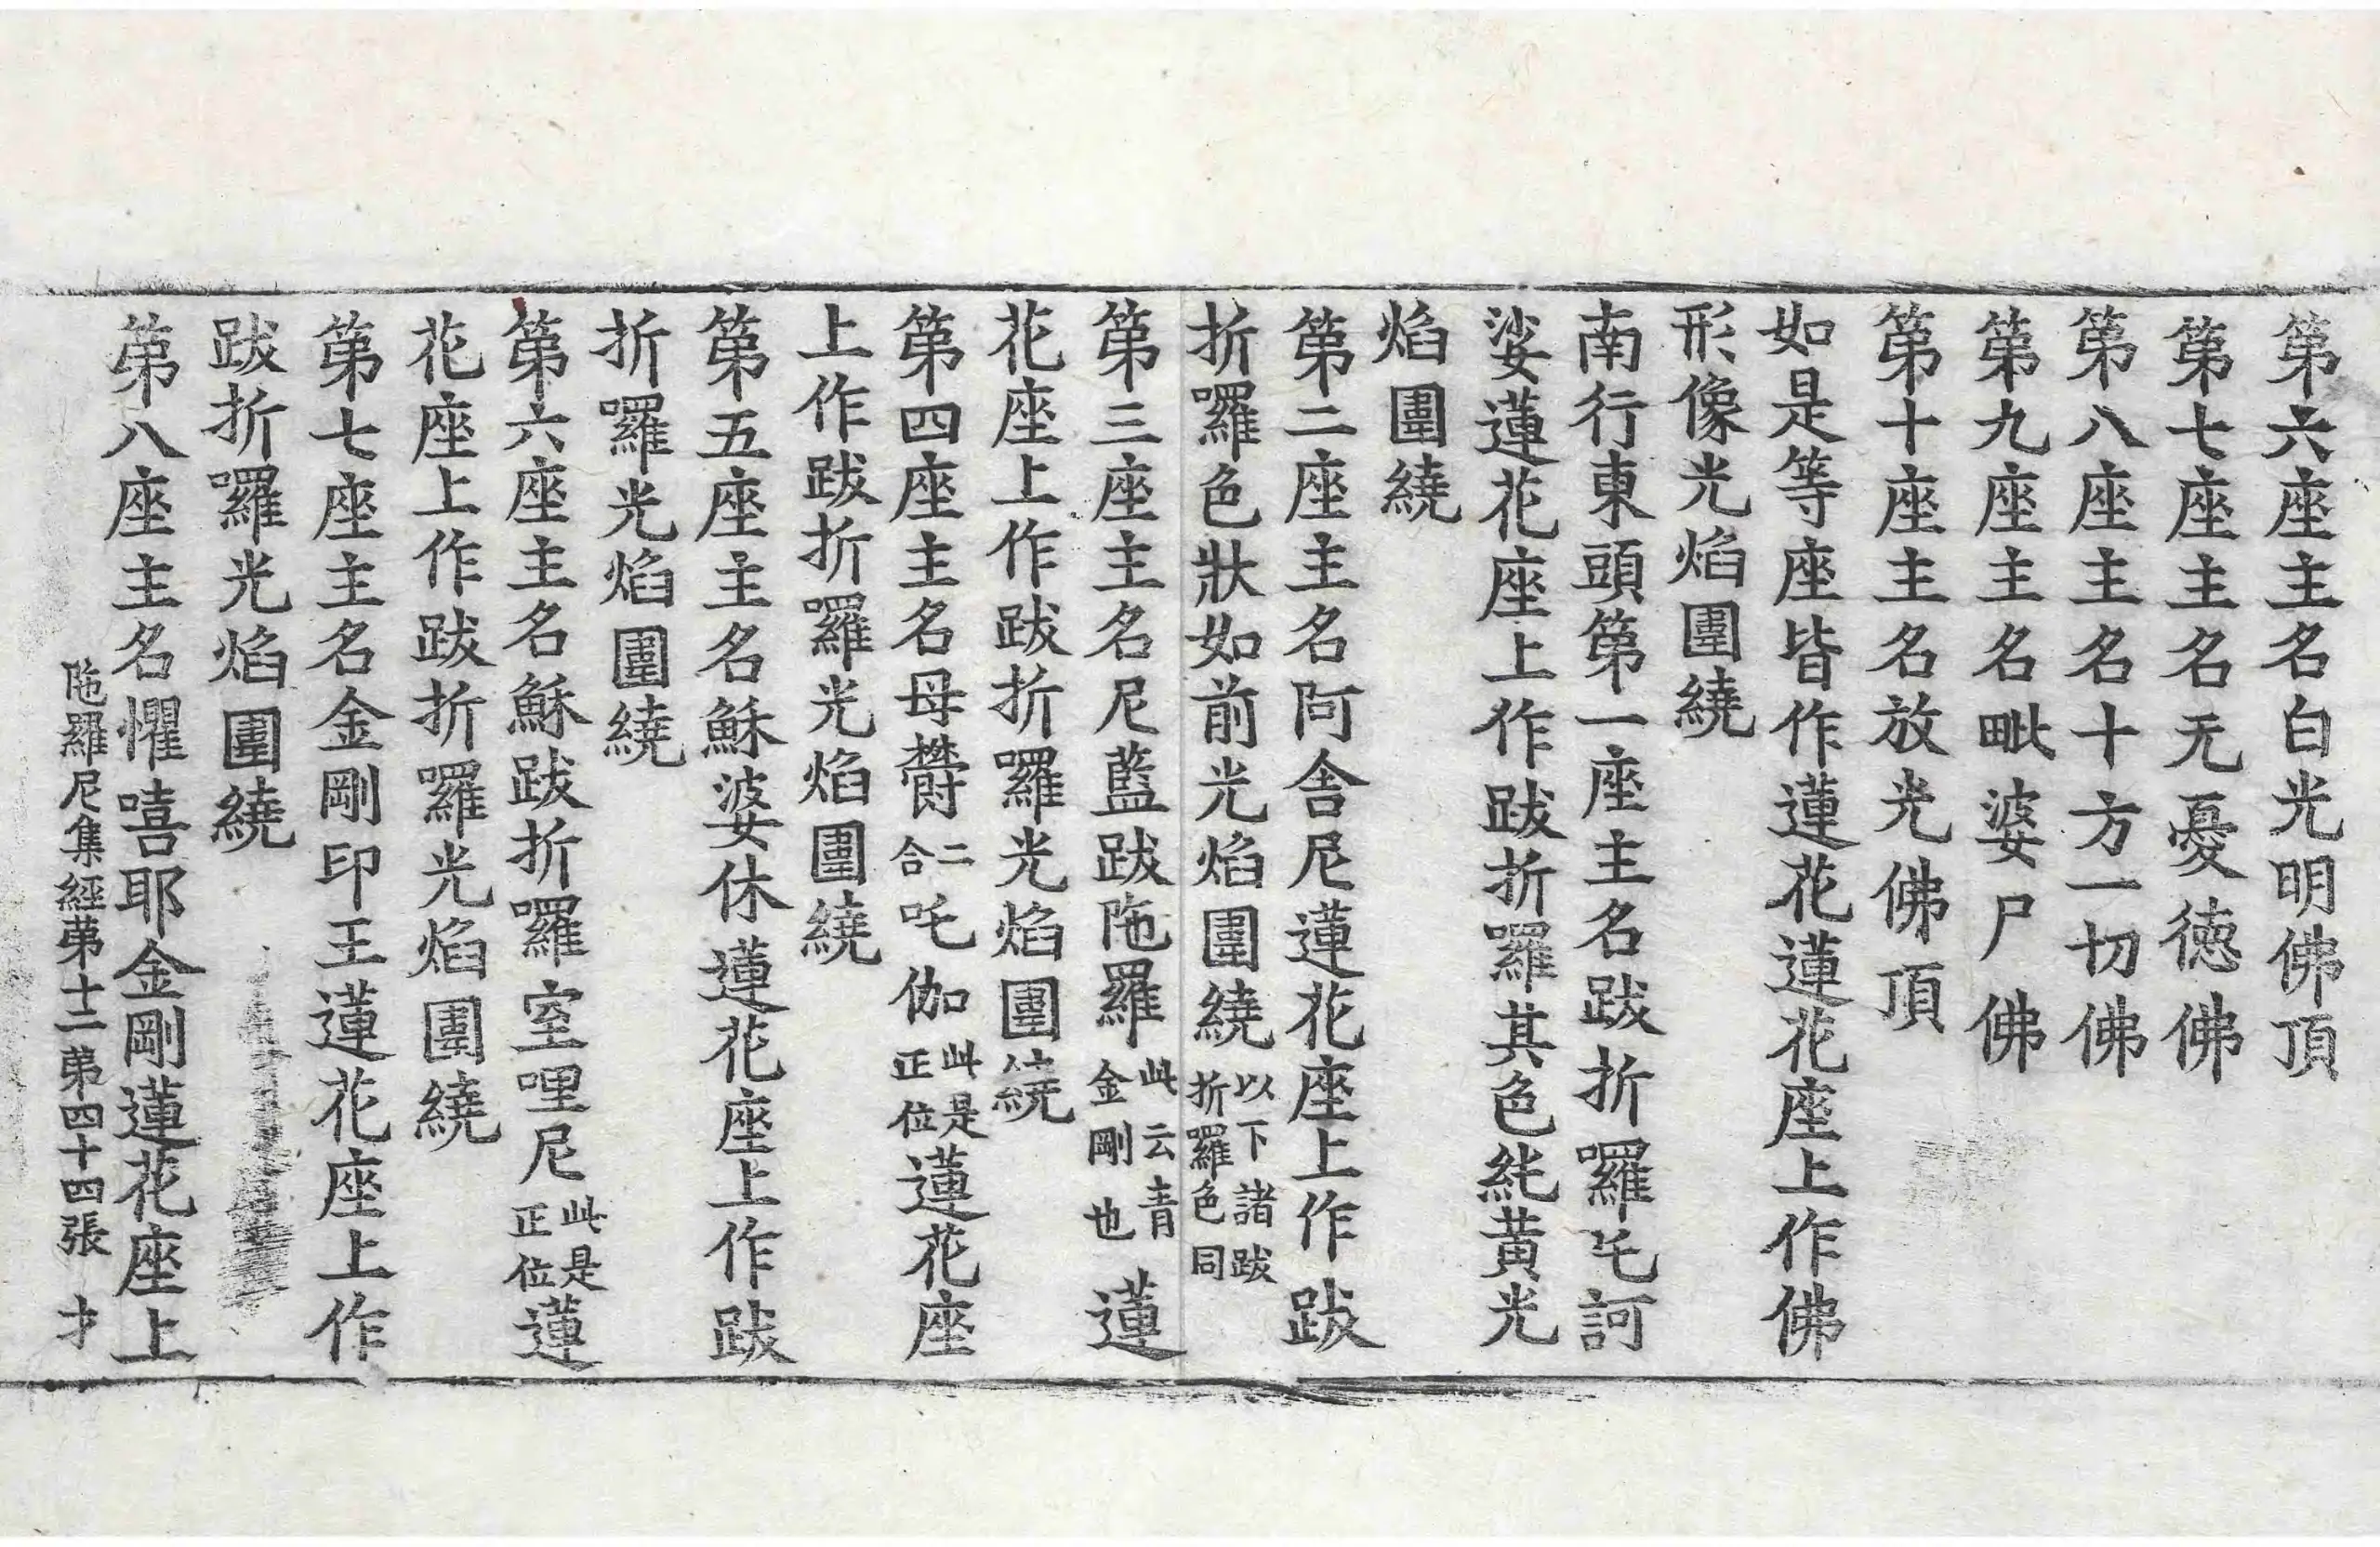 第六座主名白光明佛頂
第七座主名无憂德佛
第八座主名十方一切佛
第九座主名毗婆尸佛
第十座主名放光佛頂
如是等座皆作蓮花蓮花座上作佛
形像光焰圍繞
南行東頭第一座主名跋折囉吒訶
娑蓮花座上作跋折囉其色純黃光
焰圍繞
第二座主名阿舍尼蓮花座上作跋
折囉色狀如前光焰圍繞以下諸跋折羅色同
第三座主名尼藍跋陁羅此云青金剛也蓮
花座上作跋折囉光焰圍繞
第四座主名母欝二合吒伽此是正位蓮花座
上作跋折囉光焰圍繞
第五座主名穌婆休蓮花座上作跋
折囉光焰圍繞
第六座主名穌跋折囉室哩尼此是正位蓮
花座上作跋折囉光焰圍繞
第七座主名金剛印王蓮花座上作
跋折囉光焰圍繞
第八座主名懼嘻耶金剛蓮花座上
陁羅尼集經第十二第四十四張 才